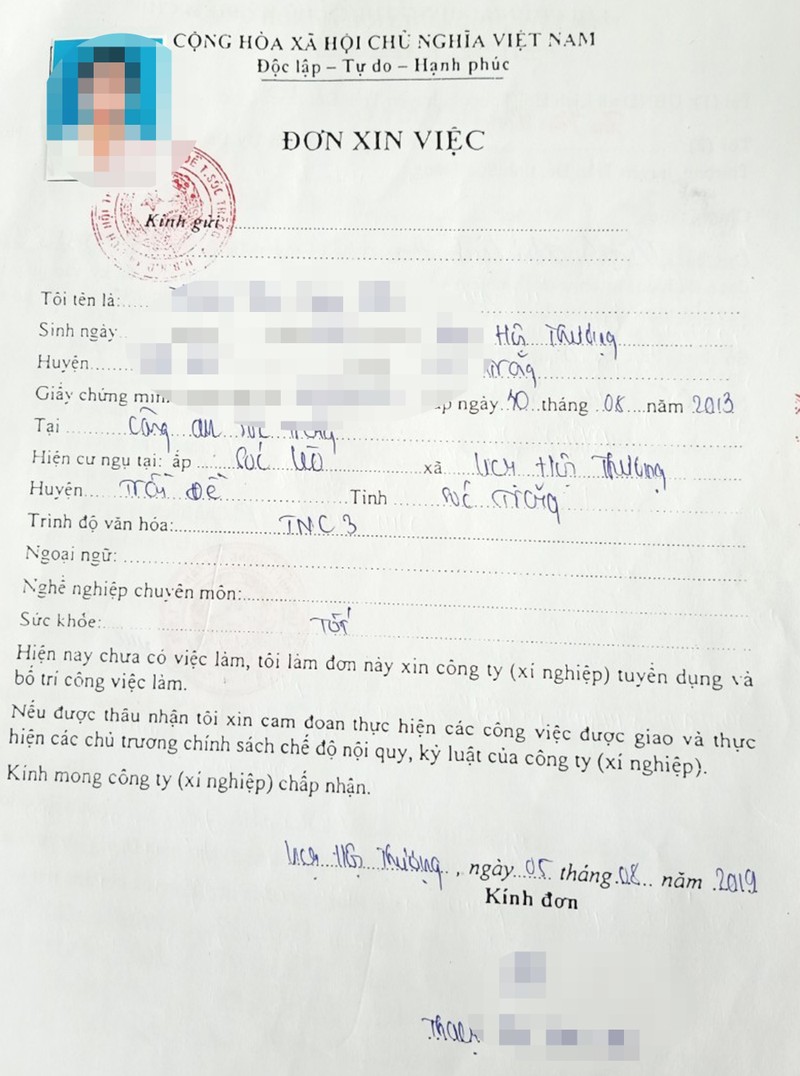 CỘNG HÒA XÃ HỘI CHỦ NGHĨA VIỆT NAM
Độc lập – Tự do – Hạnh phúc
ĐƠN XIN VIỆC
Kính gửi
Tôi tên là:
Sinh ngày Thượng
Huyện Trăng
Giấy chứng min ấp ngày 30 tháng 08 năm 2013
Tại Công an Sóc Trăng
Hiện cư ngụ tại: ấp Sóc xã Thượng
Huyện Trần Đề Tỉnh Sóc Trăng
Trình độ văn hóa:
Ngoại ngữ:
Nghề nghiệp chuyên môn:
Sức khỏe: Tốt
Hiện nay chưa có việc làm, tôi làm đơn này xin công ty (xí nghiệp) tuyển dụng và
bố trí công việc làm.
Nếu được thâu nhận tôi xin cam đoan thực hiện các công việc được giao và thực
hiện các chủ trương chính sách chế độ nội quy, kỷ luật của công ty (xí nghiệp).
Kính mong công ty (xí nghiệp) chấp nhận.
Thượng, ngày 05 tháng 08 năm 2019
Kính đơn
Thạch